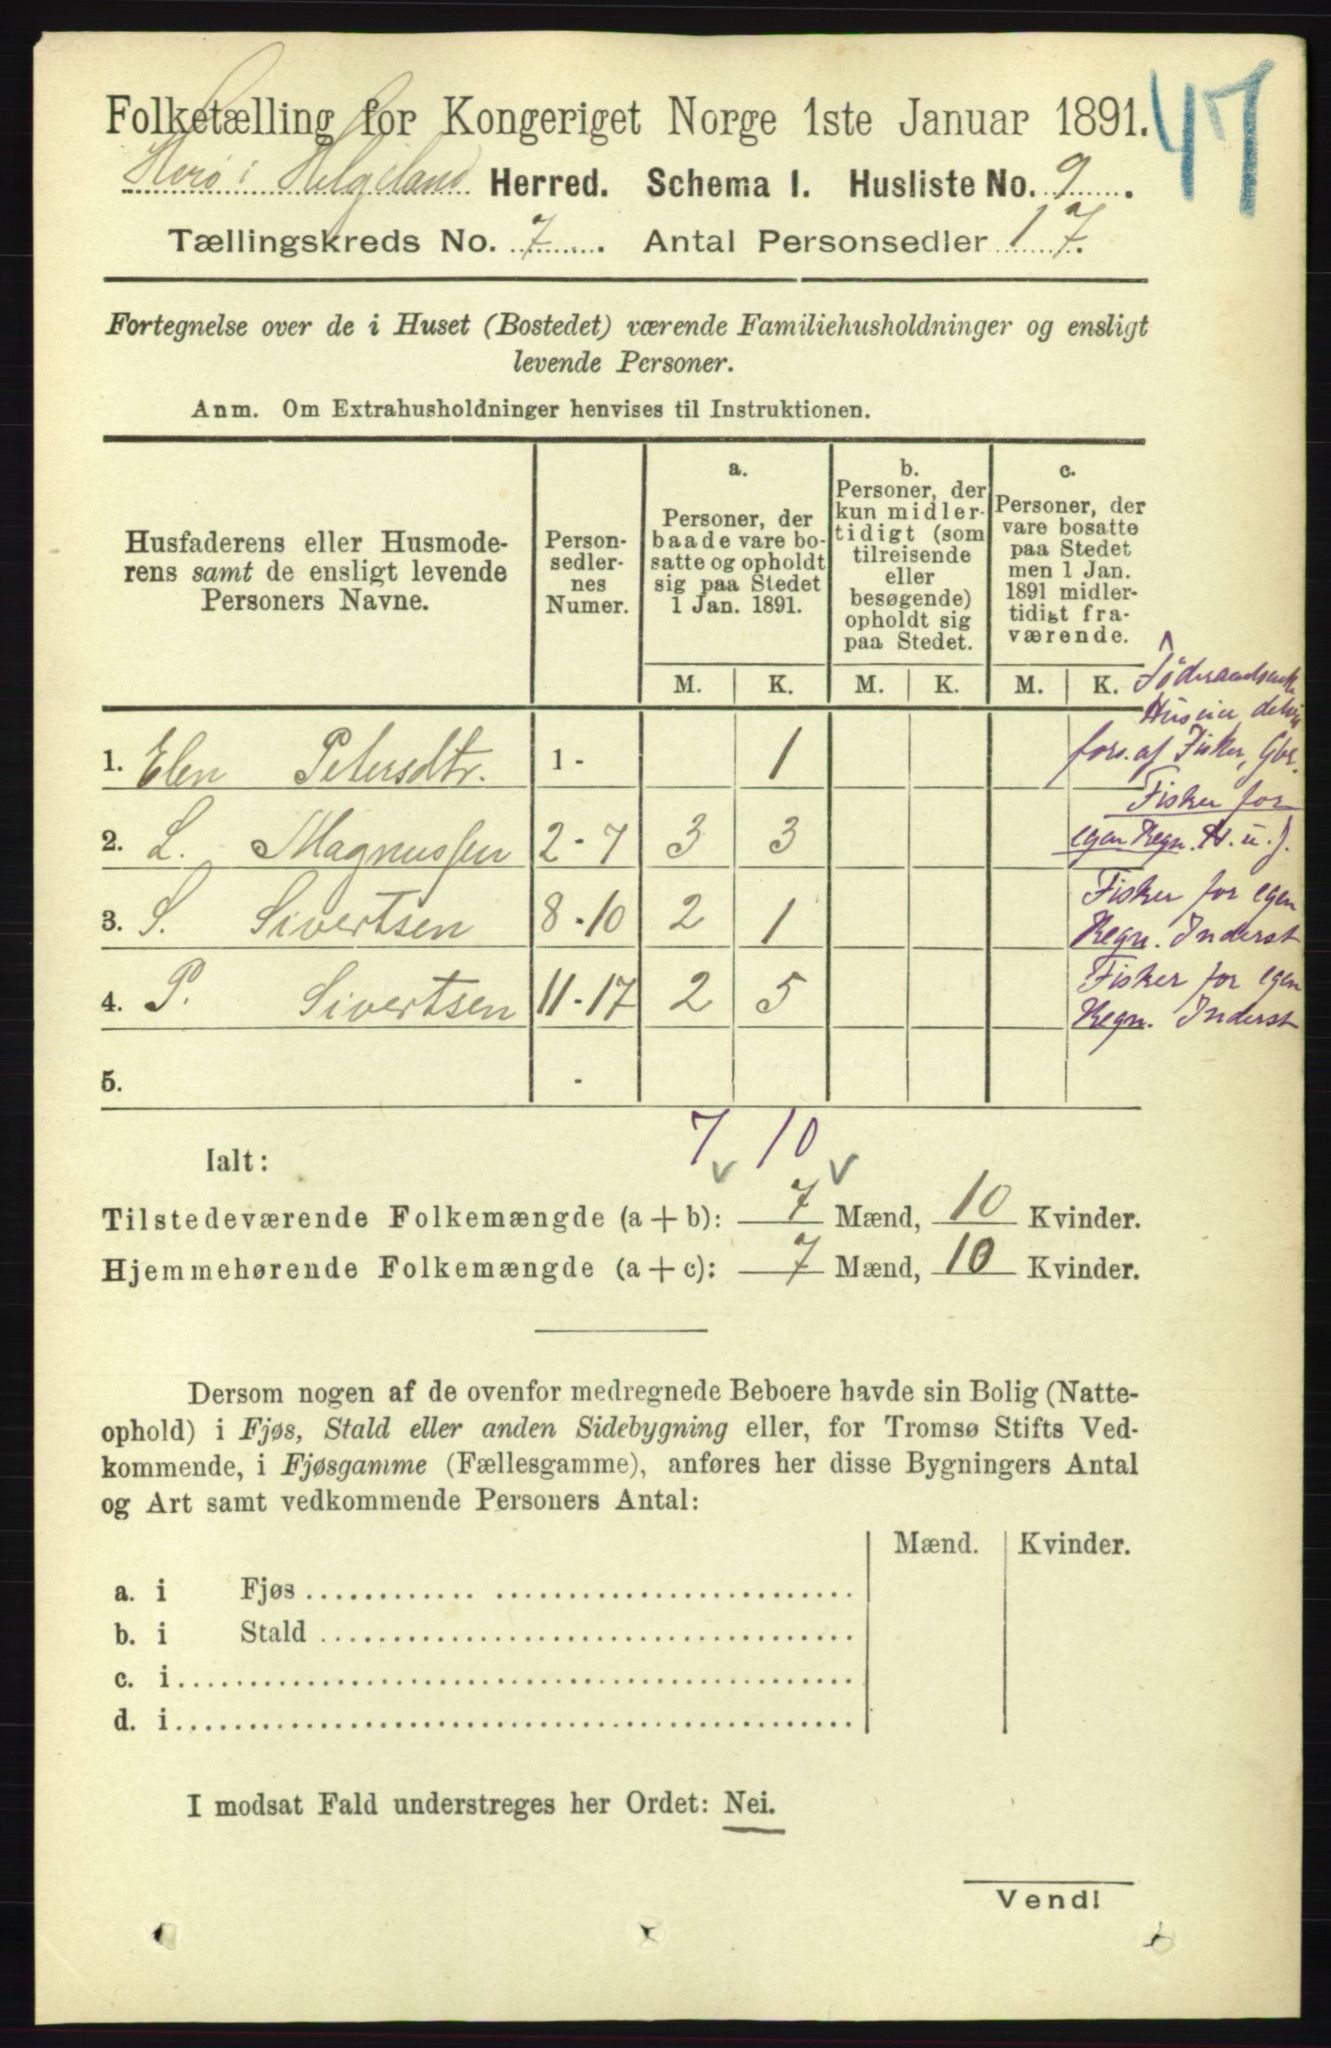 47
Folketælling for Kongeriget Norge 1ste Januar 1891.
Herø i Helgeland Herred. Schema I. Husliste No. 9.
Tællingskreds No. 7. Antal Personsedler 17.
Fortegnelse over de i Huset (Bostedet) værende Familiehusholdninger og ensligt
levende Personer.
Anm. Om Extrahusholdninger henvises til Instruktionen.
Husfaderens eller Husmode-
rens samt de ensligt levende
Personers Navne.
Person-
sedler-
nes
Numer.
a.
Personer, der
baade vare bo-
satte og opholdt
sig paa Stedet
1 Jan. 1891.
b.
Personer, der
kun midler-
tidigt (som
tilreisende
eller
besøgende)
opholdt sig
paa Stedet.
c.
Personer, der
vare bosatte
paa Stedet
men 1 Jan.
1891 midler-
tidigt fra-
værende.
M. K. M. K. M. K.
Huseier, delvis
1. Elen Petersdtr. 1 - 1 fors. af Fisker, Gbr.
Fisker for
2. L. Magnussen 2 - 7 3 3 egen Regn. H. u. J.
Fisker for egen
3. S. Sivertsen 8 - 10 2 1 Regn. Inderst
Fisker for egen
4. P. Sivertsen 11 - 17 2 5 Regn. Inderst
5. -
7 10
Ialt:
Tilstedeværende Folkemængde (a + b): 7 Mænd, 10 Kvinder.
Hjemmehørende Folkemængde (a + c): 7 Mænd, 10 Kvinder.
Dersom nogen af de ovenfor medregnede Beboere havde sin Bolig (Natte-
ophold) i Fjøs, Stald eller anden Sidebygning eller, for Tromsø Stifts Ved-
kommende, i Fjøsgamme (Fællesgamme), anføres her disse Bygningers Antal
og Art samt vedkommende Personers Antal:
Mænd. Kvinder.
a. i Fjøs
b. i Stald
c. i
d. i
I modsat Fald understreges her Ordet: Nei.
Vend!